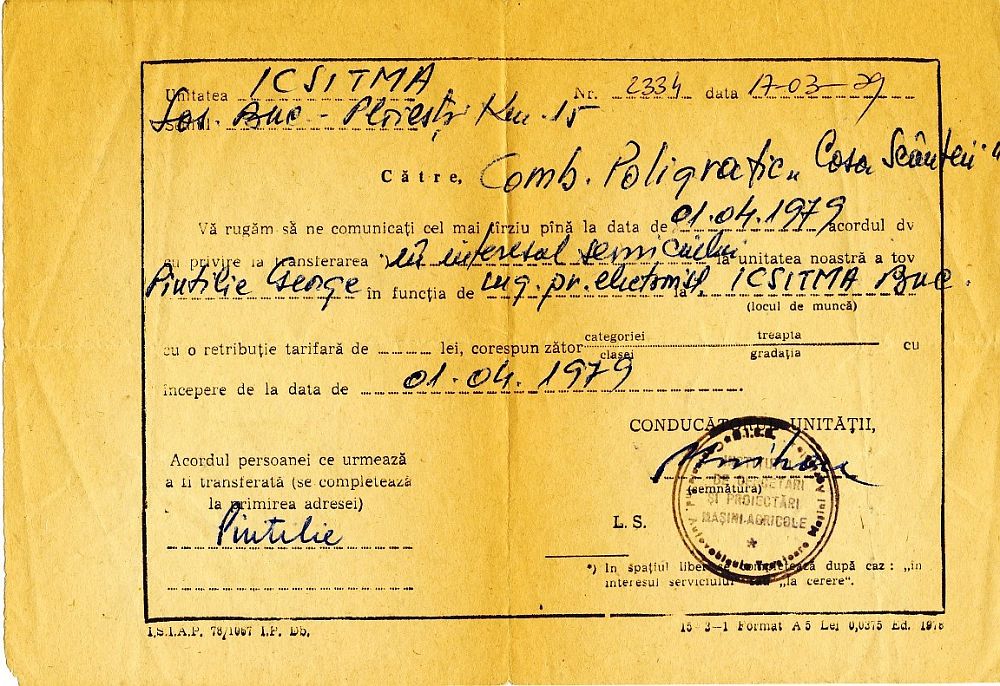 Unitatea ICSITMA Nr. 2334 data 17-03-79
Sediul Sos. Buc - Ploiești Km. 15
Către, Comb. Poligrafic „Casa Scânteii"
Vă rugăm să ne comunicați cel mai tîrziu pînă la data de 01.04.1979 acordul dv
cu privire la transferarea în interesul serviciului la unitatea noastră a tov
Pintilie George în funcția de ing. pr. la ICSITMA Buc.
(locul de muncă)
cu o retribuție tarifară de lei, corespunzător categoriei treapta cu
clasei gradația
începere de la data de 01.04.1979
CONDUCĂTORUL UNITĂȚII,
Acordul persoanei ce urmează
a fi transferată (se completează
la primirea adresei)
Pintilie
(semnătura)
L. S.
INSTITUTUL
DE CERCETĂRI
ȘI PROIECTĂRI
MAȘINI AGRICOLE
*) In spațiul liber se completează după caz : „in
interesul serviciului" sau „la cerere".
I.S.I.A.P. 78/1067 I.P. Db.
15-3-1 Format A5 Lei 0,0375 Ed. 1978